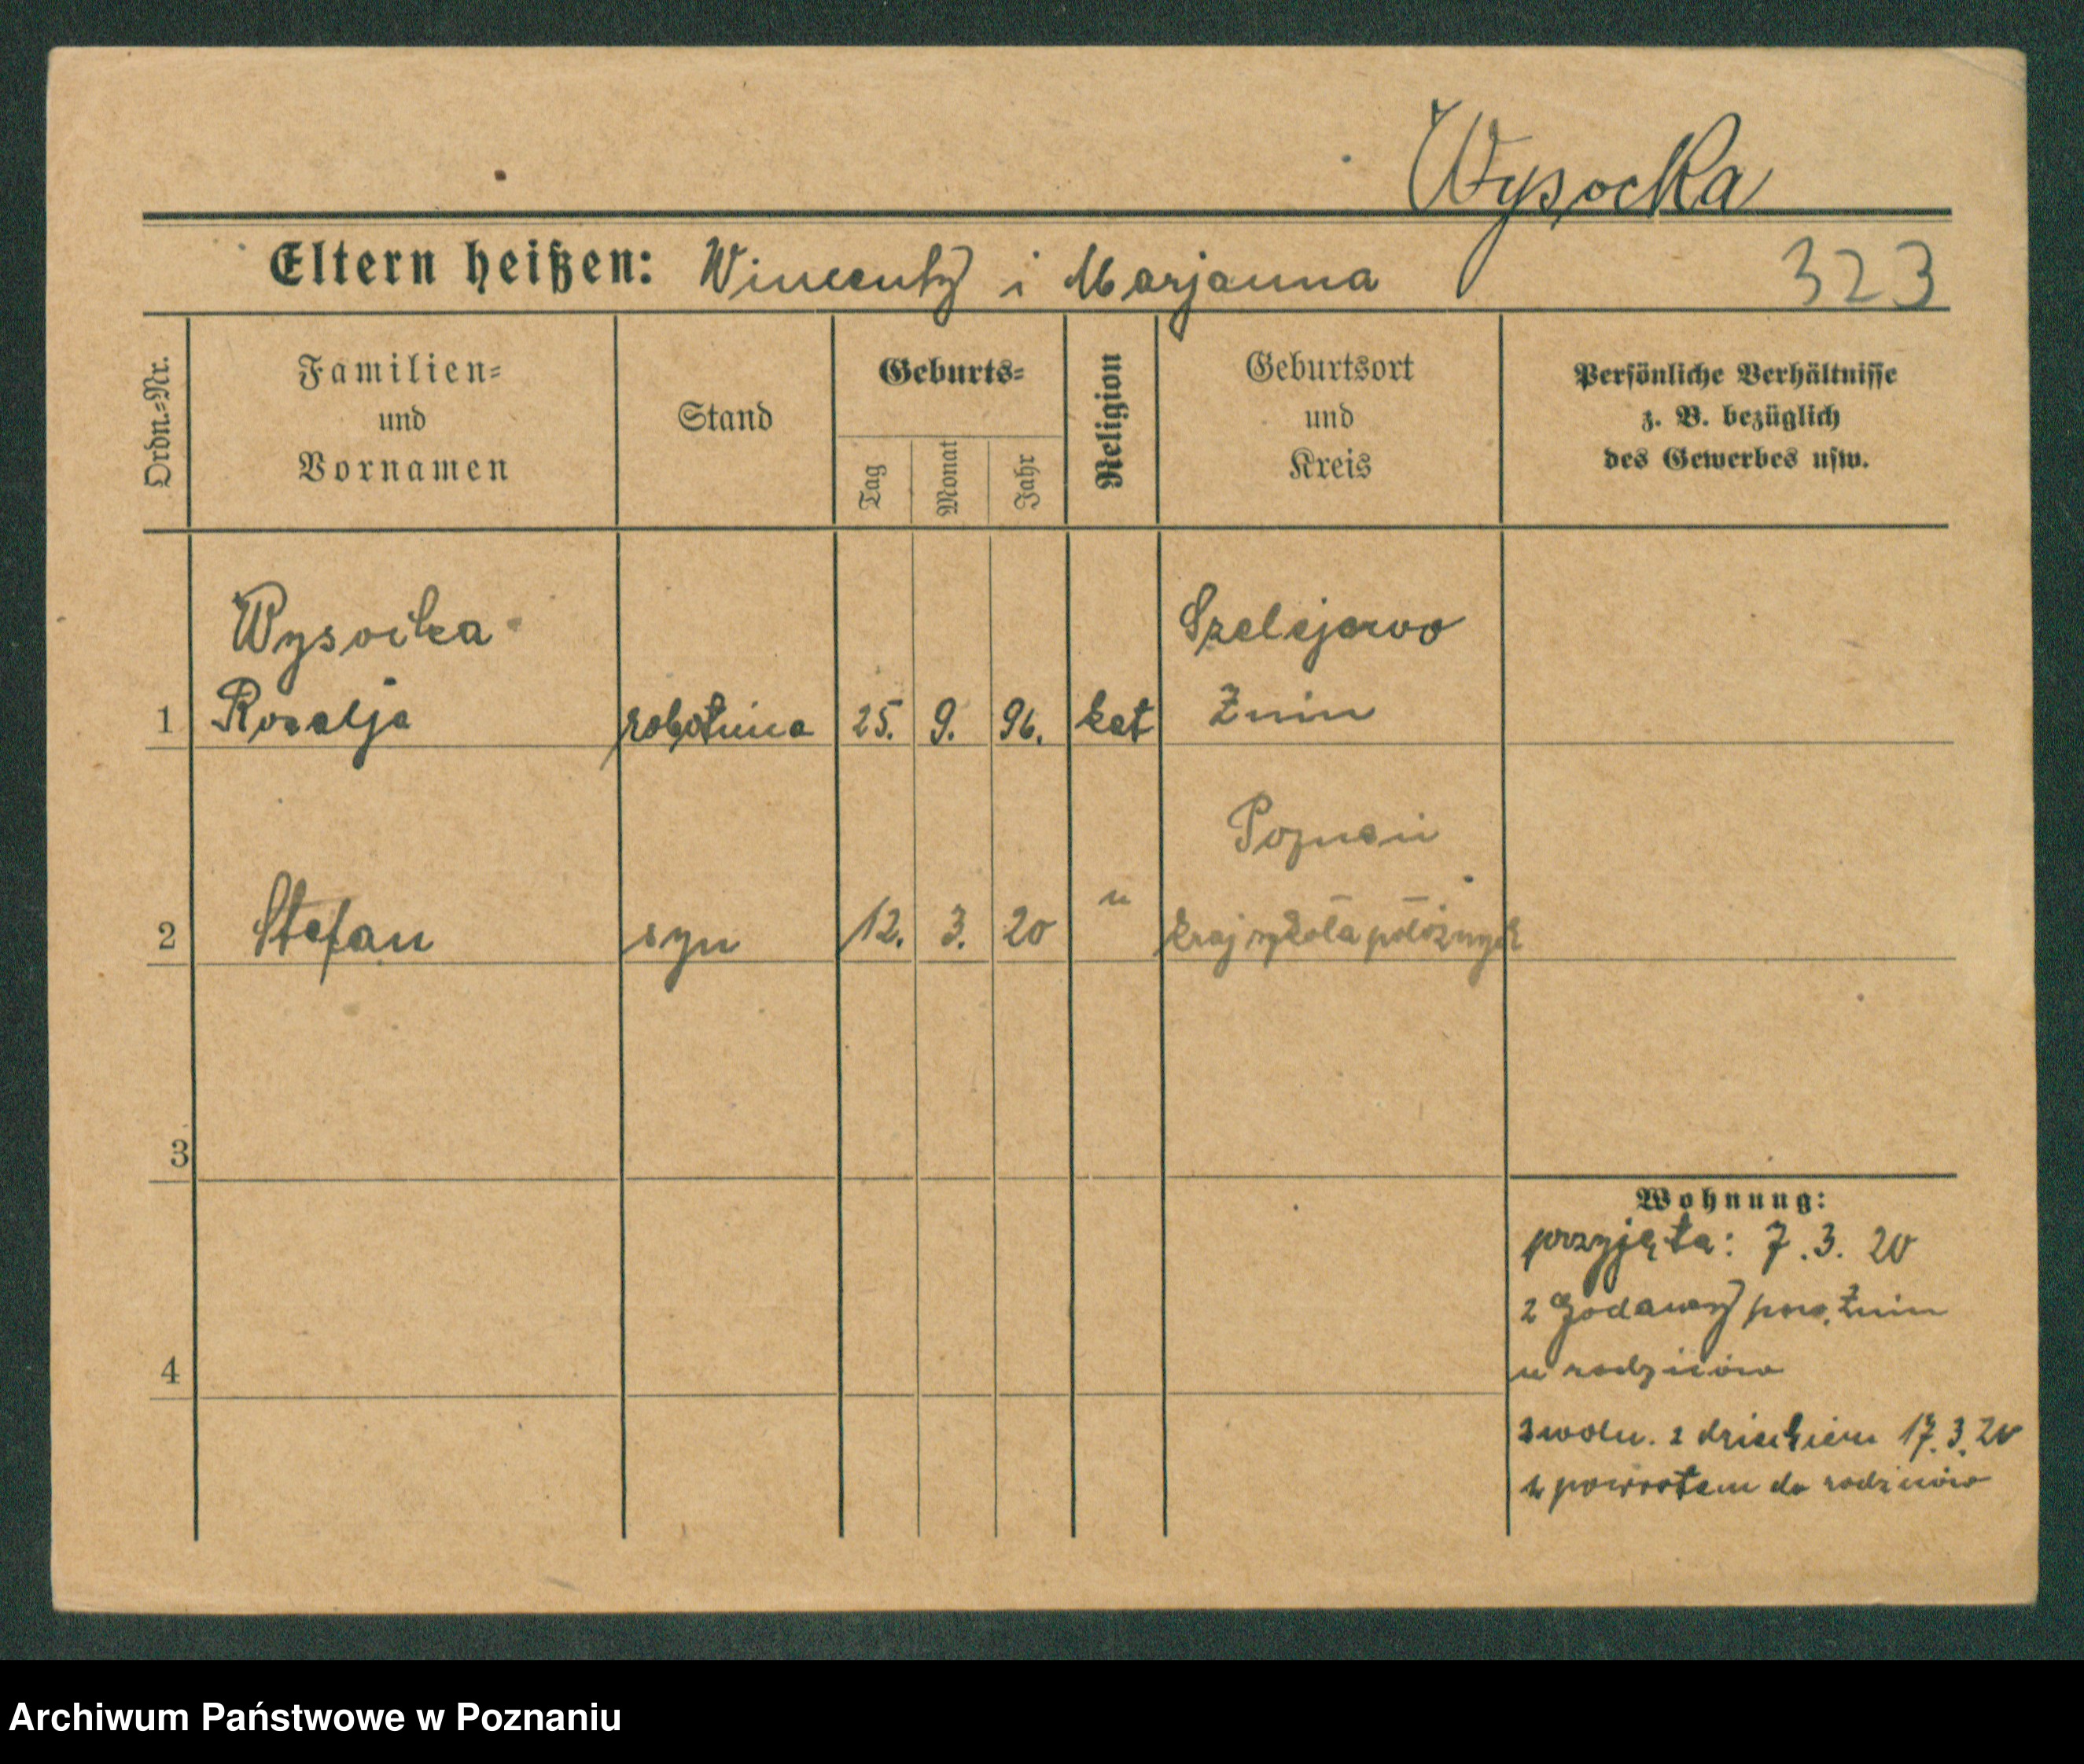 Wysocka
Eltern heißen: Wincenty i Marjanna
323
Ordn.=Nr.
Familien=
und
Vornamen
Stand
Geburts=
Tag
Monat
Jahr
Religion
Geburtsort
und
Kreis
Persönliche Verhältnisse
z. B. bezüglich
des Gewerbes usw.
Wysocka Szelejewo
1 Rozalja robotnica 25. 9. 96. kat Żnin
Poznań
2 Stefan syn 12. 3. 20 " kraj szkoła położnych
3
Wohnung:
przyjęta: 7.3. 20
z Godawy pow. Żnin
4
u rodziców
zwoln. z dzieckiem 17.3.20
z powrotem do rodziców
Archiwum Państwowe w Poznaniu